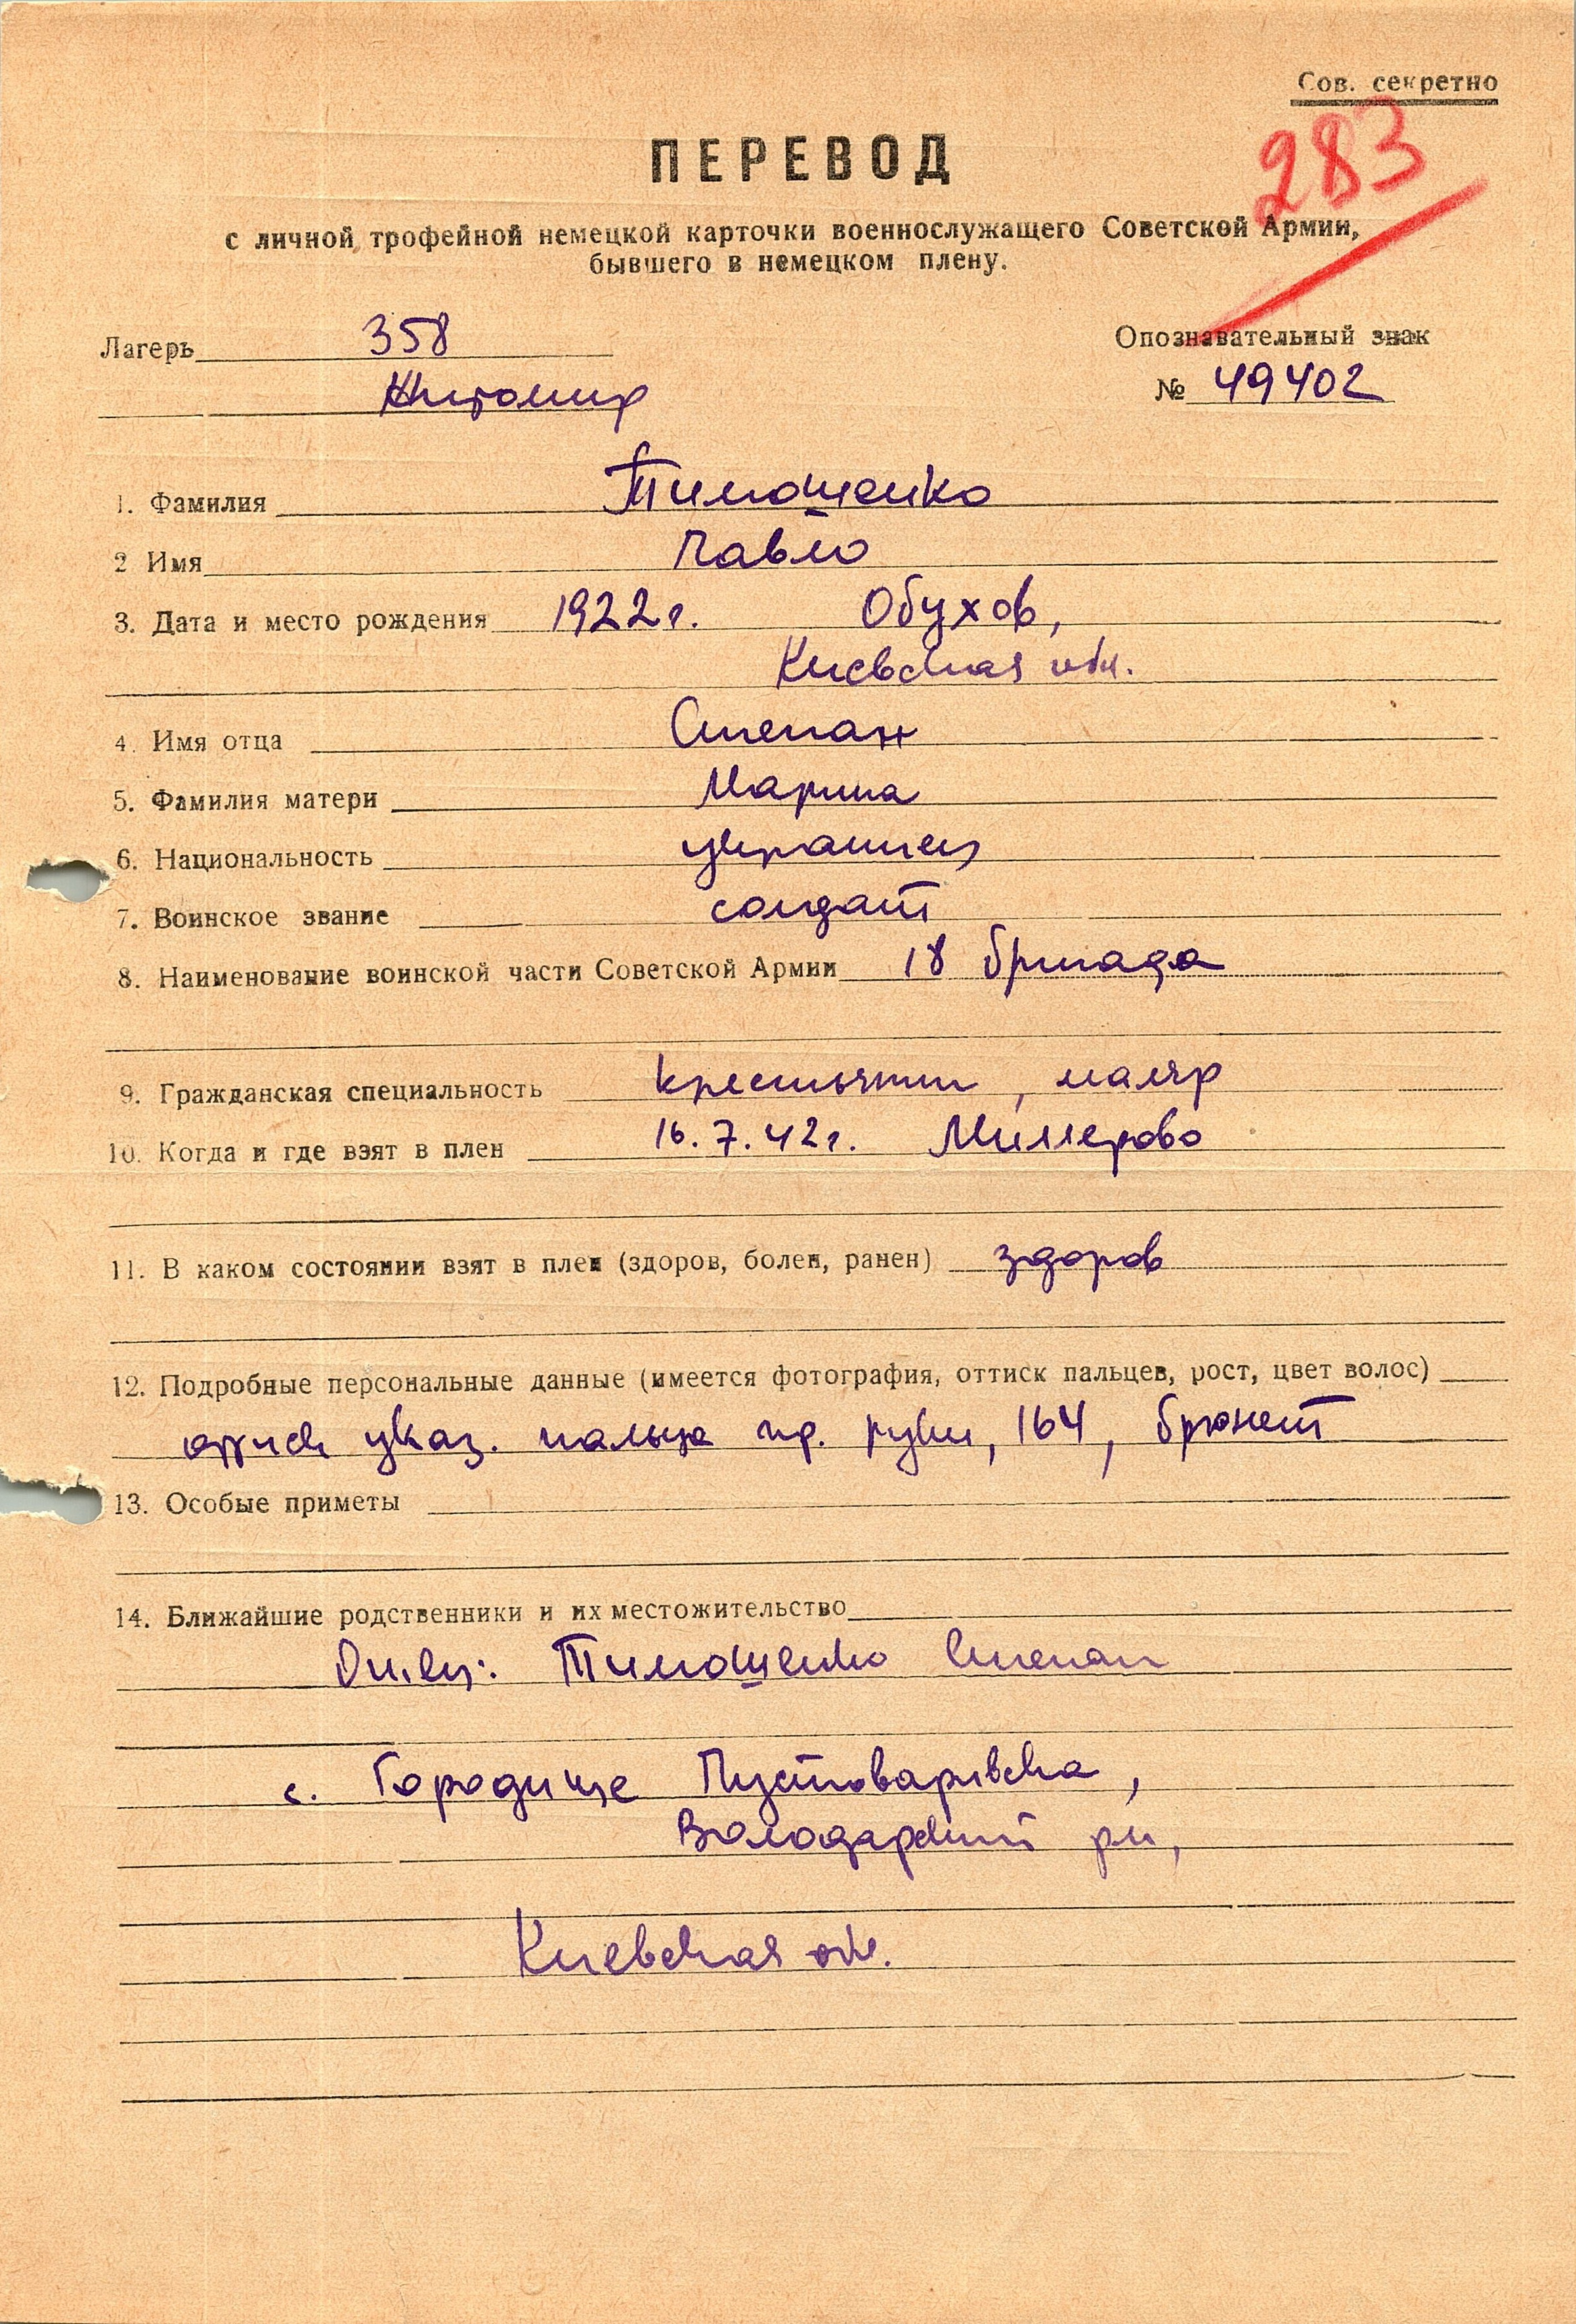 Сов. секретно
283
ПЕРЕВОД
с личной трофейной немецкой карточки военнослужащего Советской Армии,
бывшего в немецком плену.
Лагерь 358
Опознавательный знак
Житомир
№ 49402
1. Фамилия Тимошенко
2 Имя Павло
3. Дата и место рождения 1922г. Обухов,
Киевская обл.
4. Имя отца Степан
5. Фамилия матери Марина
6. Национальность украинец
7. Воинское звание солдат
8. Наименование воинской части Советской Армии 18 бригада
9. Гражданская специальность крестьянин, маляр
10. Когда и где взят в плен 16.7.42г. Миллерово
11. В каком состоянии взят в плен (здоров, болен, ранен) здоров
12. Подробные персональные данные (имеется фотография, оттиск пальцев, рост, цвет волос)
оттиск указ. пальца пр. руки, 164, брюнет
13. Особые приметы
14. Ближайшие родственники и их местожительство
Отец: Тимошенко Степан
с. Городище Пустоваривска,
Володарский рн,
Киевская обл.